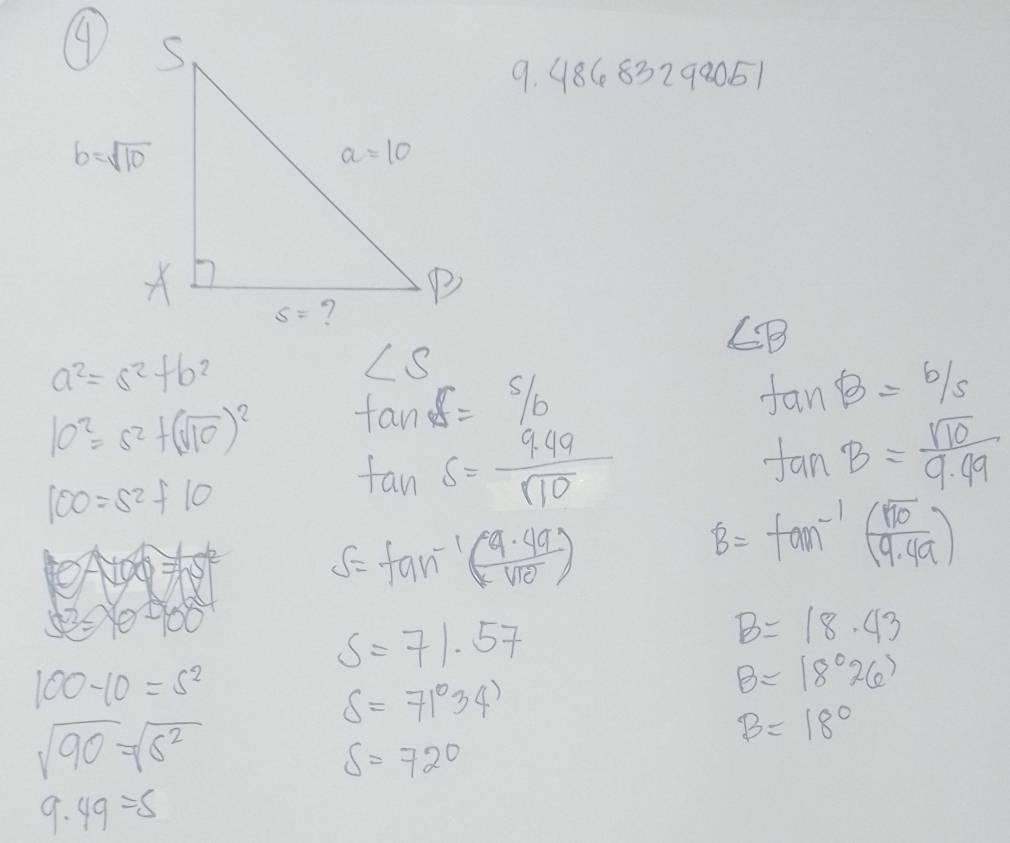 ④
S
9.48683298051
b=√10
a=10
A
B
s=?
a²=s²+b²
10²=s²+(√10)²
100=s²+10
100-10=s²
√90=√s²
9.49=s
∠S
tan S= s/b
tan S= 9.49/√10
S=tan⁻¹(9.49/√10)
S=71.57
S=71°34'
S=72°
∠B
tan B= b/s
tan B= √10/9.49
B= tan⁻¹(√10/9.49)
B= 18.43
B= 18°26'
B= 18°